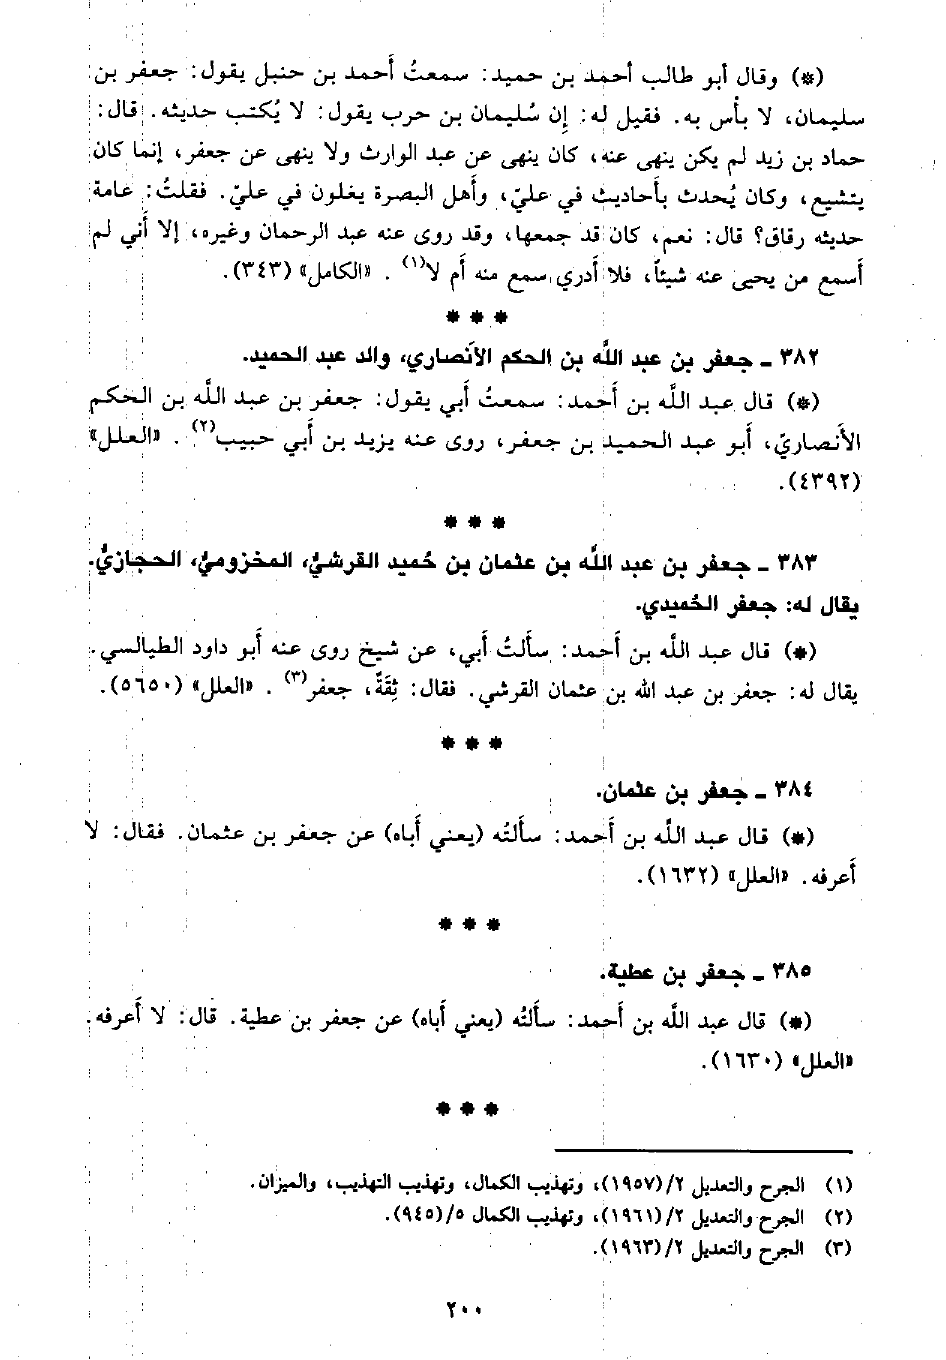 (*) وقال أبو طالب أحمد بن حميد: سمعتُ أَحمد بن حنبل يقول: جعفر بن
سليمان، لا بأس به. فقيل له: إِن سُليمان بن حرب يقول: لا يُكتب حديثه. قال:
حماد بن زيد لم يكن ينهى عنه، كان ينهى عن عبد الوارث ولا ينهى عن جعفر، إنما كان
يتشيع، وكان يُحدث بأحاديث في عليّ، وأهل البصرة يغلون في عليّ. فقلتُ: عامة
حديثه رقاق؟ قال: نعم، كان قد جمعها، وقد روى عنه عبد الرحمان وغيره، إلا أني لم
أَسمع من يحيى عنه شيئاً، فلا أَدري سمع منه أَم لا(١) . «الكامل» (٣٤٣).
* * *
٣٨٢ ـ جعفر بن عبد اللَّه بن الحكم الأَنصاري، والد عبد الحميد.
(*) قال عبد اللَّه بن أَحمد: سمعتُ أَبي يقول: جعفر بن عبد اللَّه بن الحكم
الأَنصاريّ، أَبو عبد الحميد بن جعفر، روى عنه يزيد بن أَبي حبيب(٢) . «العلل»
(٤٣٩٢).
* * *
٣٨٣ ـ جعفر بن عبد اللَّه بن عثمان بن حُميد القرشيُّ، المخزوميُّ، الحجازيُّ.
يقال له: جعفر الحُميدي.
(*) قال عبد اللَّه بن أَحمد: سأَلتُ أَبي، عن شيخ روى عنه أَبو داود الطيالسي.
يقال له: جعفر بن عبد الله بن عثمان القرشي. فقال: ثِقَةٌ، جعفر(٣) . «العلل» (٥٦٥٠).
* * *
٣٨٤ ـ جعفر بن عثمان.
(*) قال عبد اللَّه بن أَحمد: سأَلتُه (يعني أَباه) عن جعفر بن عثمان. فقال: لا
أَعرفه. «العلل» (١٦٣٢).
* * *
٣٨٥ ـ جعفر بن عطية.
(*) قال عبد اللَّه بن أَحمد: سأَلتُه (يعني أَباه) عن جعفر بن عطية. قال: لا أَعرفه.
«العلل» (١٦٣٠).
* * *
(١) الجرح والتعديل ٢/(١٩٥٧)، وتهذيب الكمال، وتهذيب التهذيب، والميزان.
(٢) الجرح والتعديل ٢/(١٩٦١)، وتهذيب الكمال ٥/(٩٤٥).
(٣) الجرح والتعديل ٢/(١٩٦٣).
٢٠٠